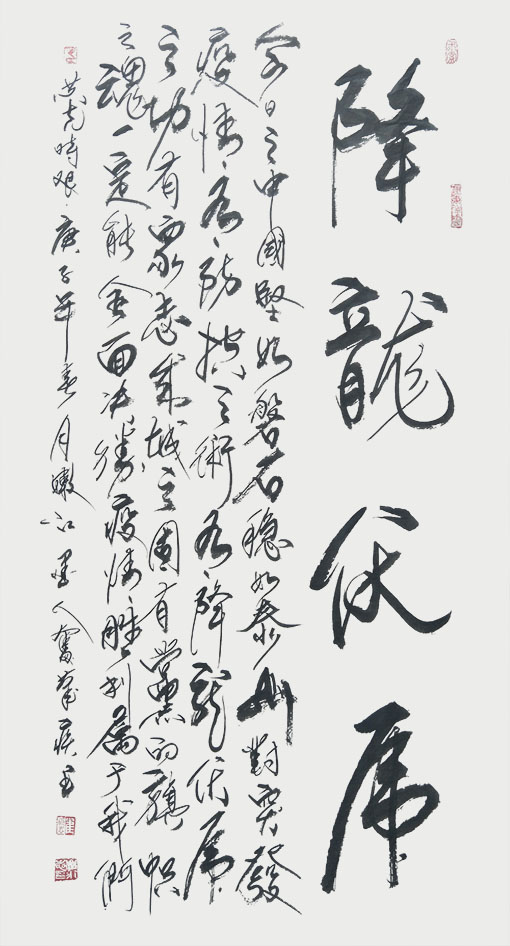 降龍伏虎
今日之中國堅如磐石稳如泰山對突發
疫情有防控之術有降龍伏虎
之功有眾志成城之固有黨的旗幟
之魂一定能全面决勝疫情勝利屬于我們
共克時艱庚子年春月嫩江墨人奮筆疾書